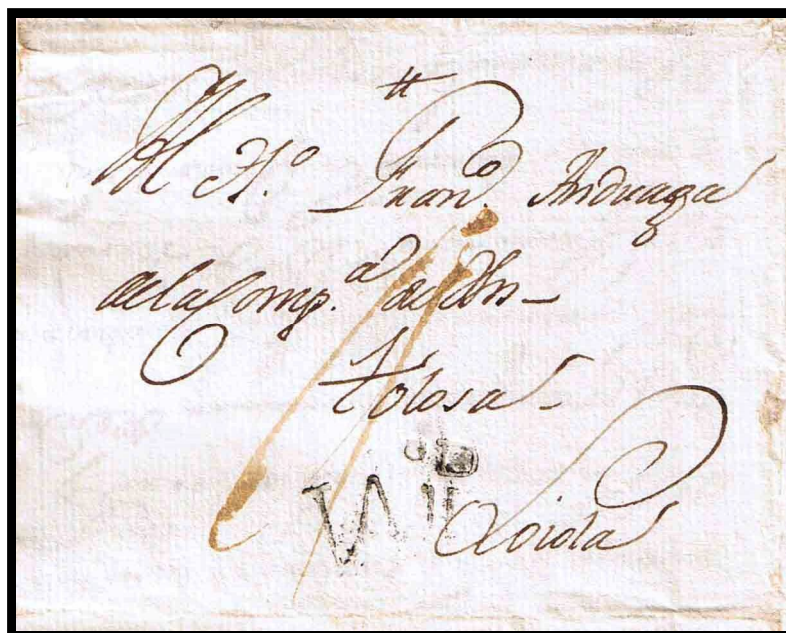 Al H.º Fran.co Anduaga
de la Comp.a de Jhs
Tolosa
Loiola